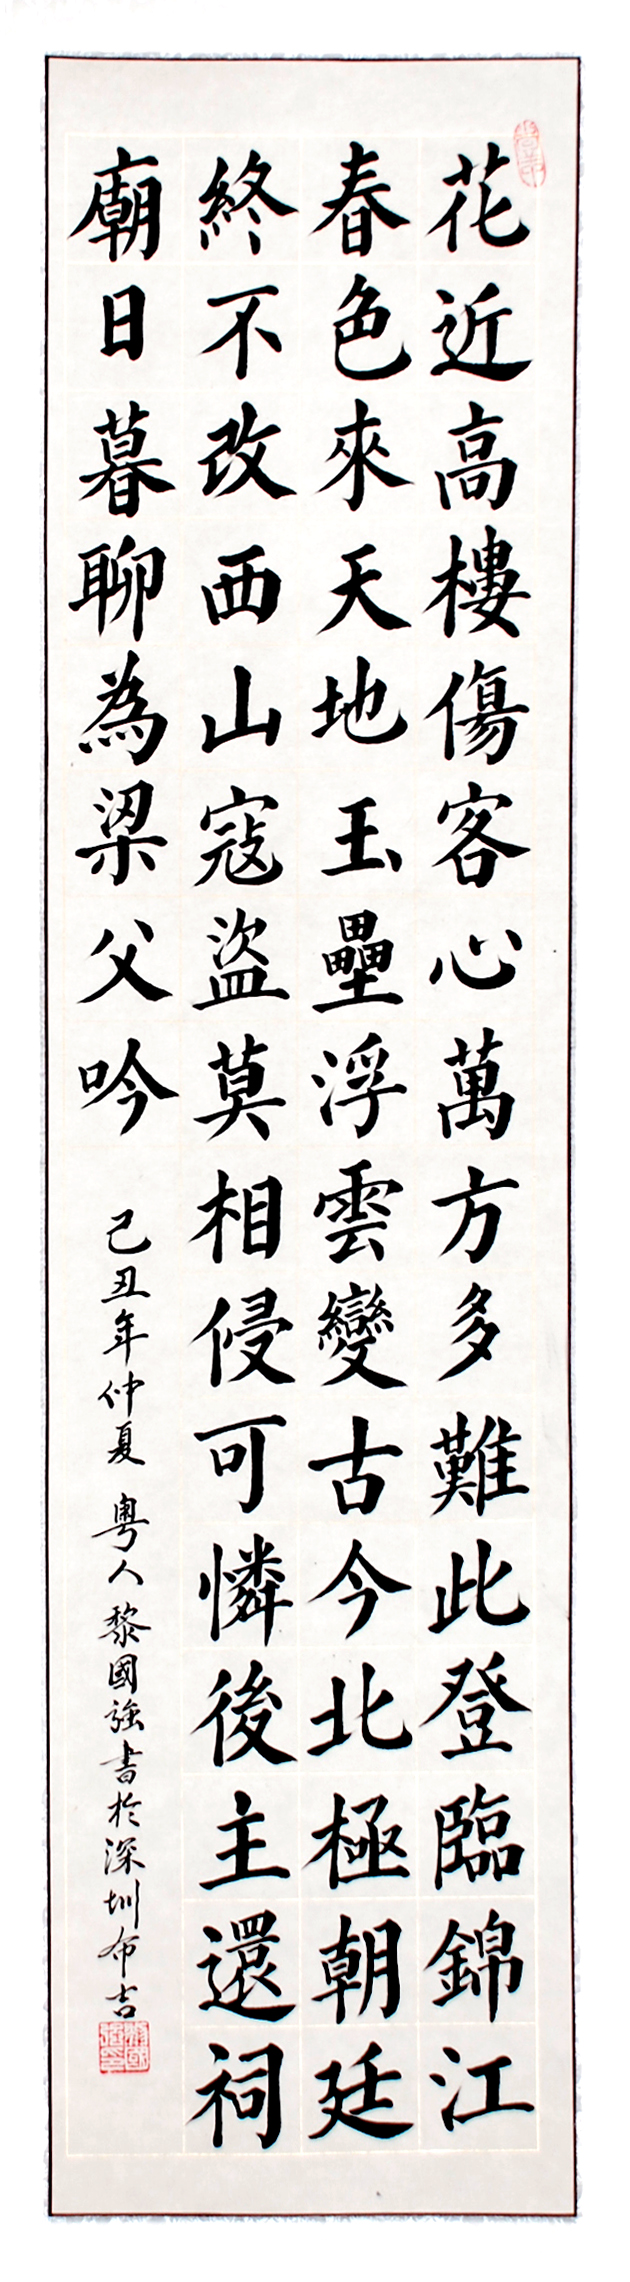 花近高樓傷客心萬方多難此登臨錦江
春色來天地玉壘浮雲變古今北極朝廷
終不改西山寇盜莫相侵可憐後主還祠
廟日暮聊為梁父吟
己丑年仲夏 粵人黎國強書於深圳布吉